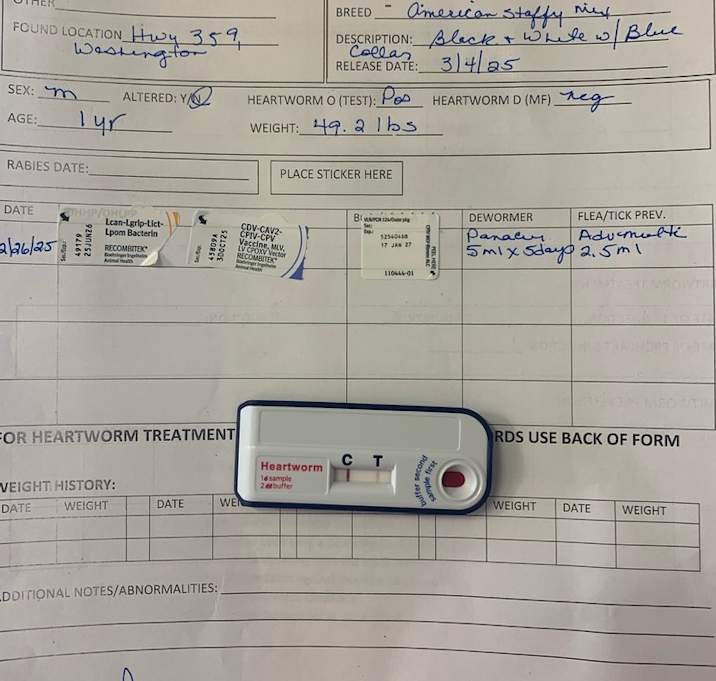 OTHER
BREED American Staffy mix
FOUND LOCATION Hwy 359,
Washington
DESCRIPTION: Black + White w/ Blue
Collar
RELEASE DATE: 3/4/25
SEX: m ALTERED: Y/N HEARTWORM O (TEST): Pos HEARTWORM D (MF) neg
AGE: 1 yr WEIGHT: 49.2 lbs
RABIES DATE:
PLACE STICKER HERE
DATE DHPP/DHLPP DEWORMER FLEA/TICK PREV.
2/26/25 Panacur Advmulti
5ml x 5days 2.5ml
Lcan-Lgrip-Lict-
Lpom Bacterin
RECOMBITEK
Boehringer Ingelheim
Animal Health
49179
25JUN26
CDV-CAV2-
CPIV-CPV
Vaccine, MLV,
LV CPOXV Vector
RECOMBITEK
Boehringer Ingelheim
Animal Health
43809A
30OCT25
Ser.:
Exp.:
17 JAN 27
110444-01
FOR HEARTWORM TREATMENT RDS USE BACK OF FORM
C T
Heartworm
1 sample
2 buffer
buffer second
sample first
WEIGHT HISTORY:
DATE WEIGHT DATE WEI WEIGHT DATE WEIGHT
ADDITIONAL NOTES/ABNORMALITIES: